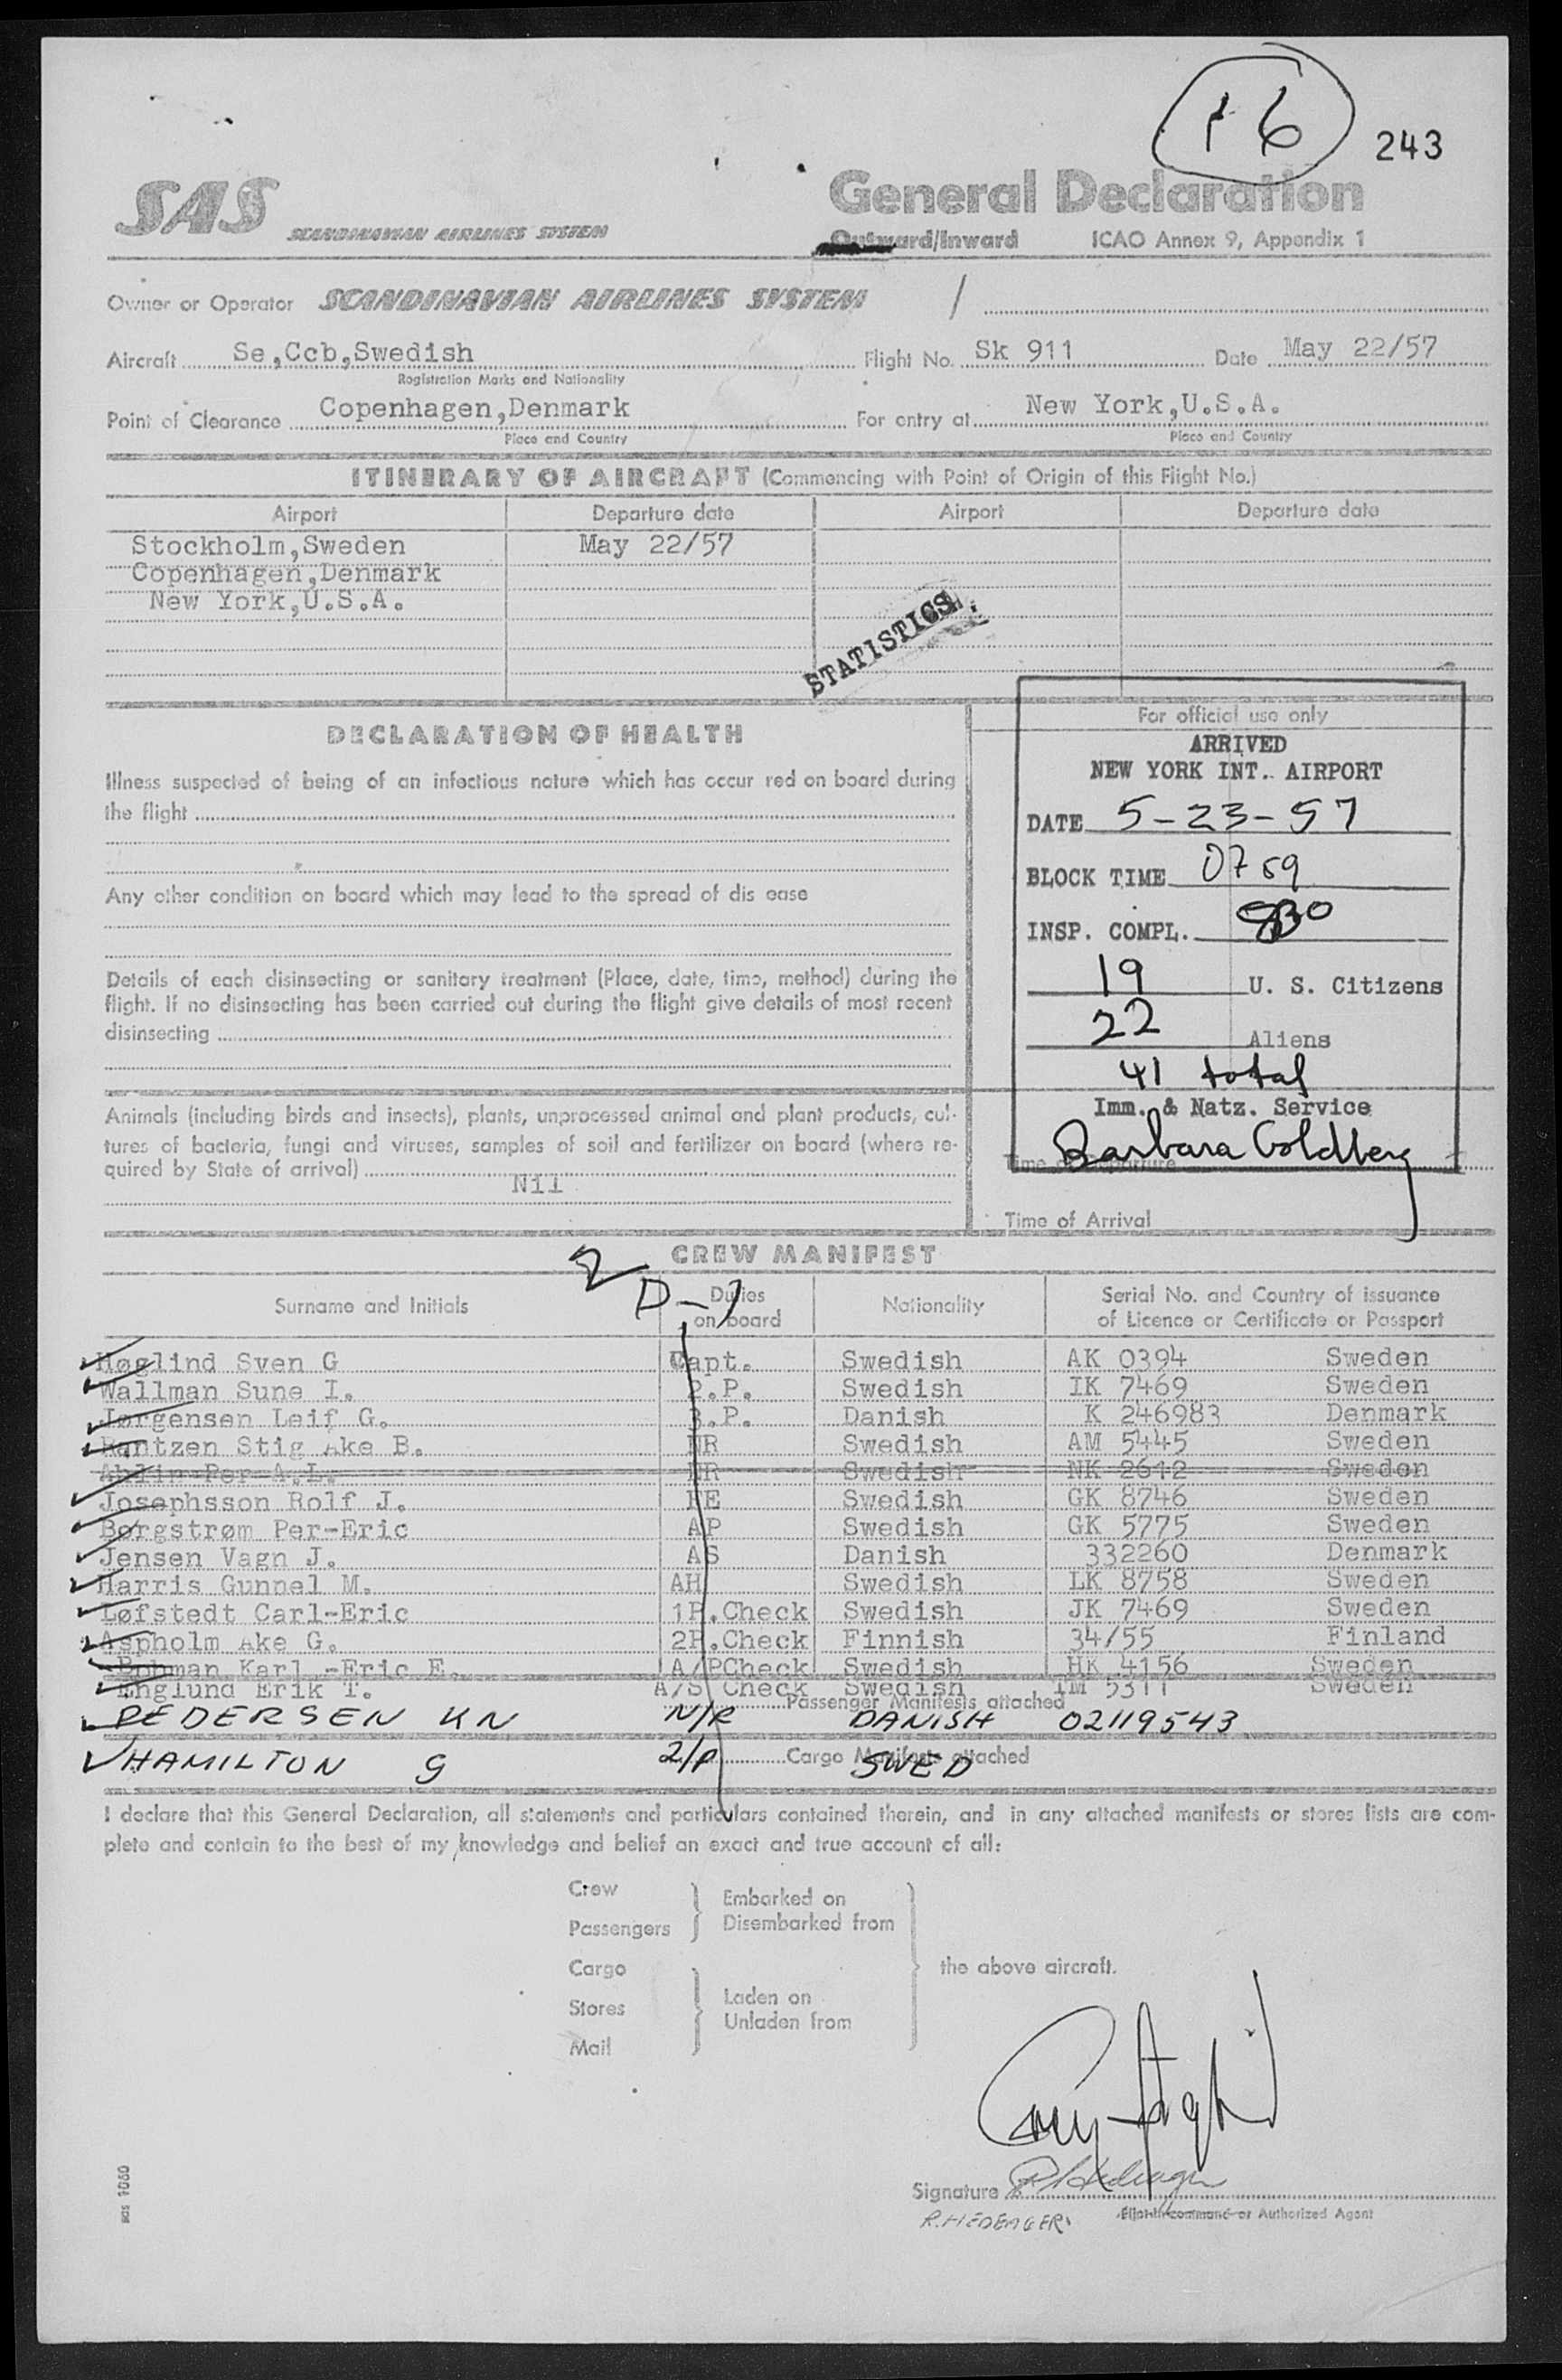 16
243
SAS SCANDINAVIAN AIRLINES SYSTEM
General Declaration
Outward/Inward ICAO Annex 9, Appendix 1
Owner or Operator SCANDINAVIAN AIRLINES SYSTEM /
Aircraft Se,Ccb,Swedish Flight No. Sk 911 Date May 22/57
Registration Marks and Nationality
Point of Clearance Copenhagen,Denmark For entry at New York,U.S.A.
Place and Country Place and Country
ITINERARY OF AIRCRAFT (Commencing with Point of Origin of this Flight No.)
Airport Departure date Airport Departure date
Stockholm,Sweden May 22/57
Copenhagen,Denmark
New York,U.S.A.
STATISTICS
DECLARATION OF HEALTH
Illness suspected of being of an infectious nature which has occur red on board during
the flight
Any other condition on board which may lead to the spread of dis ease
Details of each disinsecting or sanitary treatment (Place, date, time, method) during the
flight. If no disinsecting has been carried out during the flight give details of most recent
disinsecting
Animals (including birds and insects), plants, unprocessed animal and plant products, cul-
tures of bacteria, fungi and viruses, samples of soil and fertilizer on board (where re-
quired by State of arrival)
Nil
For official use only
ARRIVED
NEW YORK INT. AIRPORT
DATE 5-23-57
BLOCK TIME 0759
INSP. COMPL. 830
19 U. S. Citizens
22 Aliens
41 total
Imm. & Natz. Service
Barbara Goldberg
Time of Departure
Time of Arrival
CREW MANIFEST
2
D-1
Surname and Initials Duties on board Nationality Serial No. and Country of issuance
of Licence or Certificate or Passport
Høglind Sven G Capt. Swedish AK 0394 Sweden
Wallman Sune I. 2.P. Swedish IK 7469 Sweden
Jørgensen Leif G. 3.P. Danish K 246983 Denmark
Rantzen Stig Ake B. NR Swedish AM 5445 Sweden
Ahlin Per A.L. NR Swedish NK 2612 Sweden
Josephsson Rolf J. FE Swedish GK 8746 Sweden
Børgstrøm Per-Eric AP Swedish GK 5775 Sweden
Jensen Vagn J. AS Danish 332260 Denmark
Harris Gunnel M. AH Swedish LK 8758 Sweden
Løfstedt Carl-Eric 1P.Check Swedish JK 7469 Sweden
Aspholm Ake G. 2P.Check Finnish 34/55 Finland
Bohman Karl -Eric E. A/PCheck Swedish HK 4156 Sweden
Englund Erik T. A/S Check Swedish IM 5311 Sweden
Passenger Manifests attached
PEDERSEN KN N/R DANISH 02119543
Cargo Manifests attached
HAMILTON G 2/P SWED
I declare that this General Declaration, all statements and particulars contained therein, and in any attached manifests or stores lists are com-
plete and contain to the best of my knowledge and belief an exact and true account of all:
Crew
Passengers
Embarked on
Disembarked from
Cargo
Stores
Mail
Laden on
Unladen from
the above aircraft.
Signature
R. HEDEAGER
Pilot-in-command or Authorized Agent
sas 1060